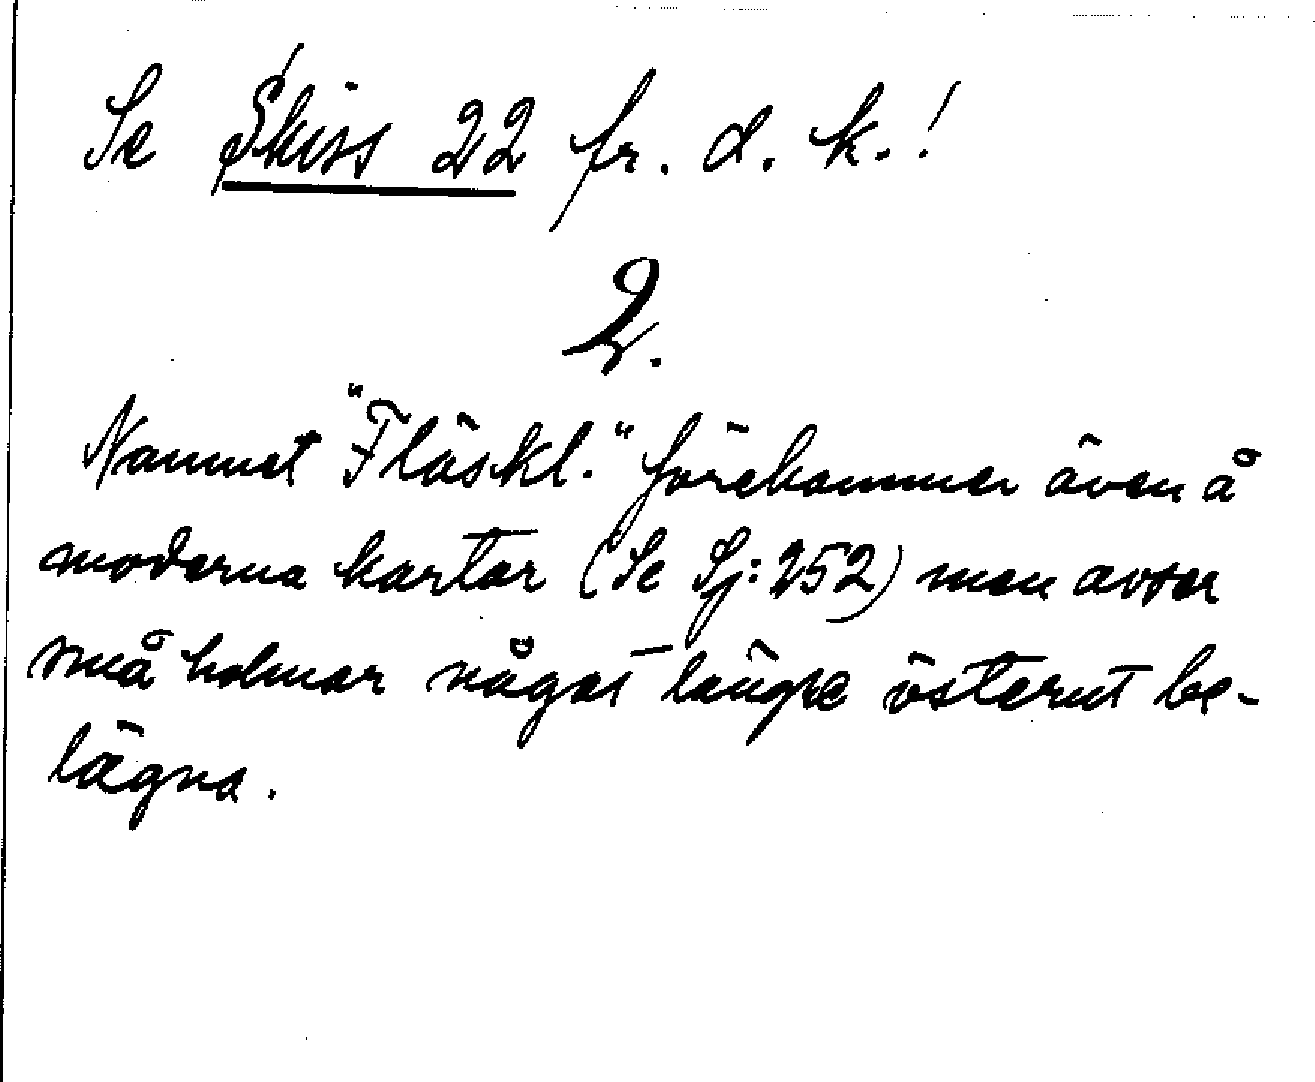 Se Skiss 22 fr. d. k.!
2.
Namnet "Fläskl." förekommer även å
moderna kartor (Se Sj: 252) men avser
små holmar något längre österut be-
lägna.